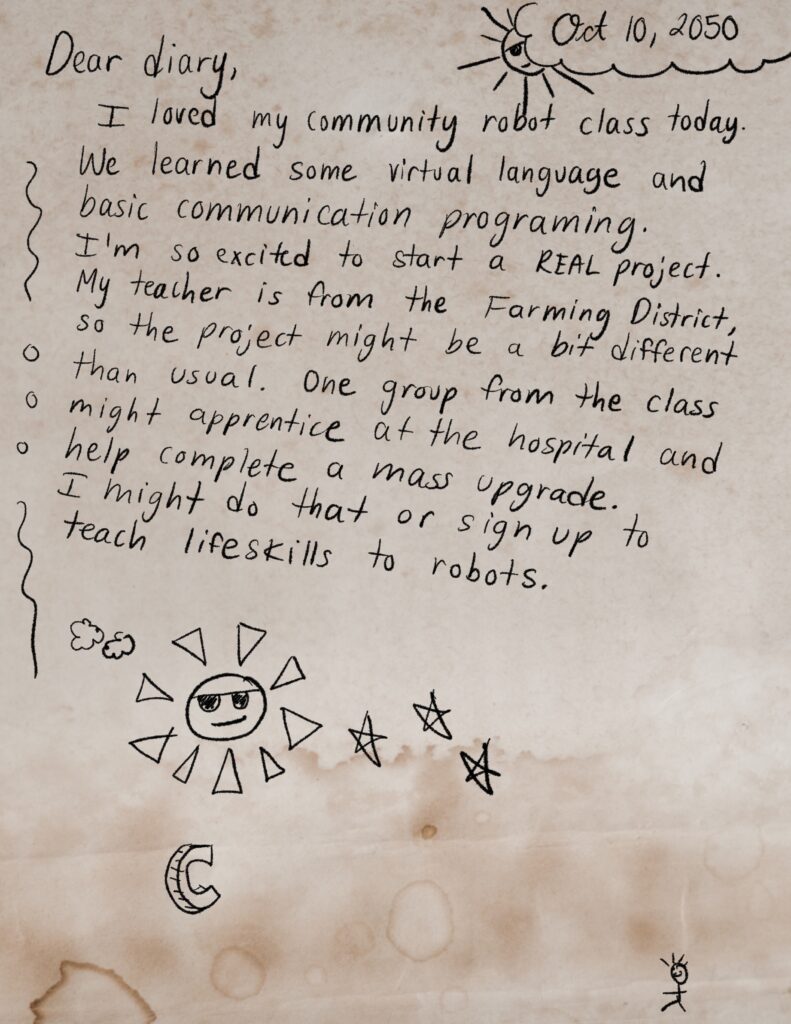 Oct 10, 2050
Dear diary,
I loved my community robot class today.
We learned some virtual language and
basic communication programing.
I'm so excited to start a REAL project.
My teacher is from the Farming District,
so the project might be a bit different
than usual. One group from the class
might apprentice at the hospital and
help complete a mass upgrade.
I might do that or sign up to
teach lifeskills to robots.
C